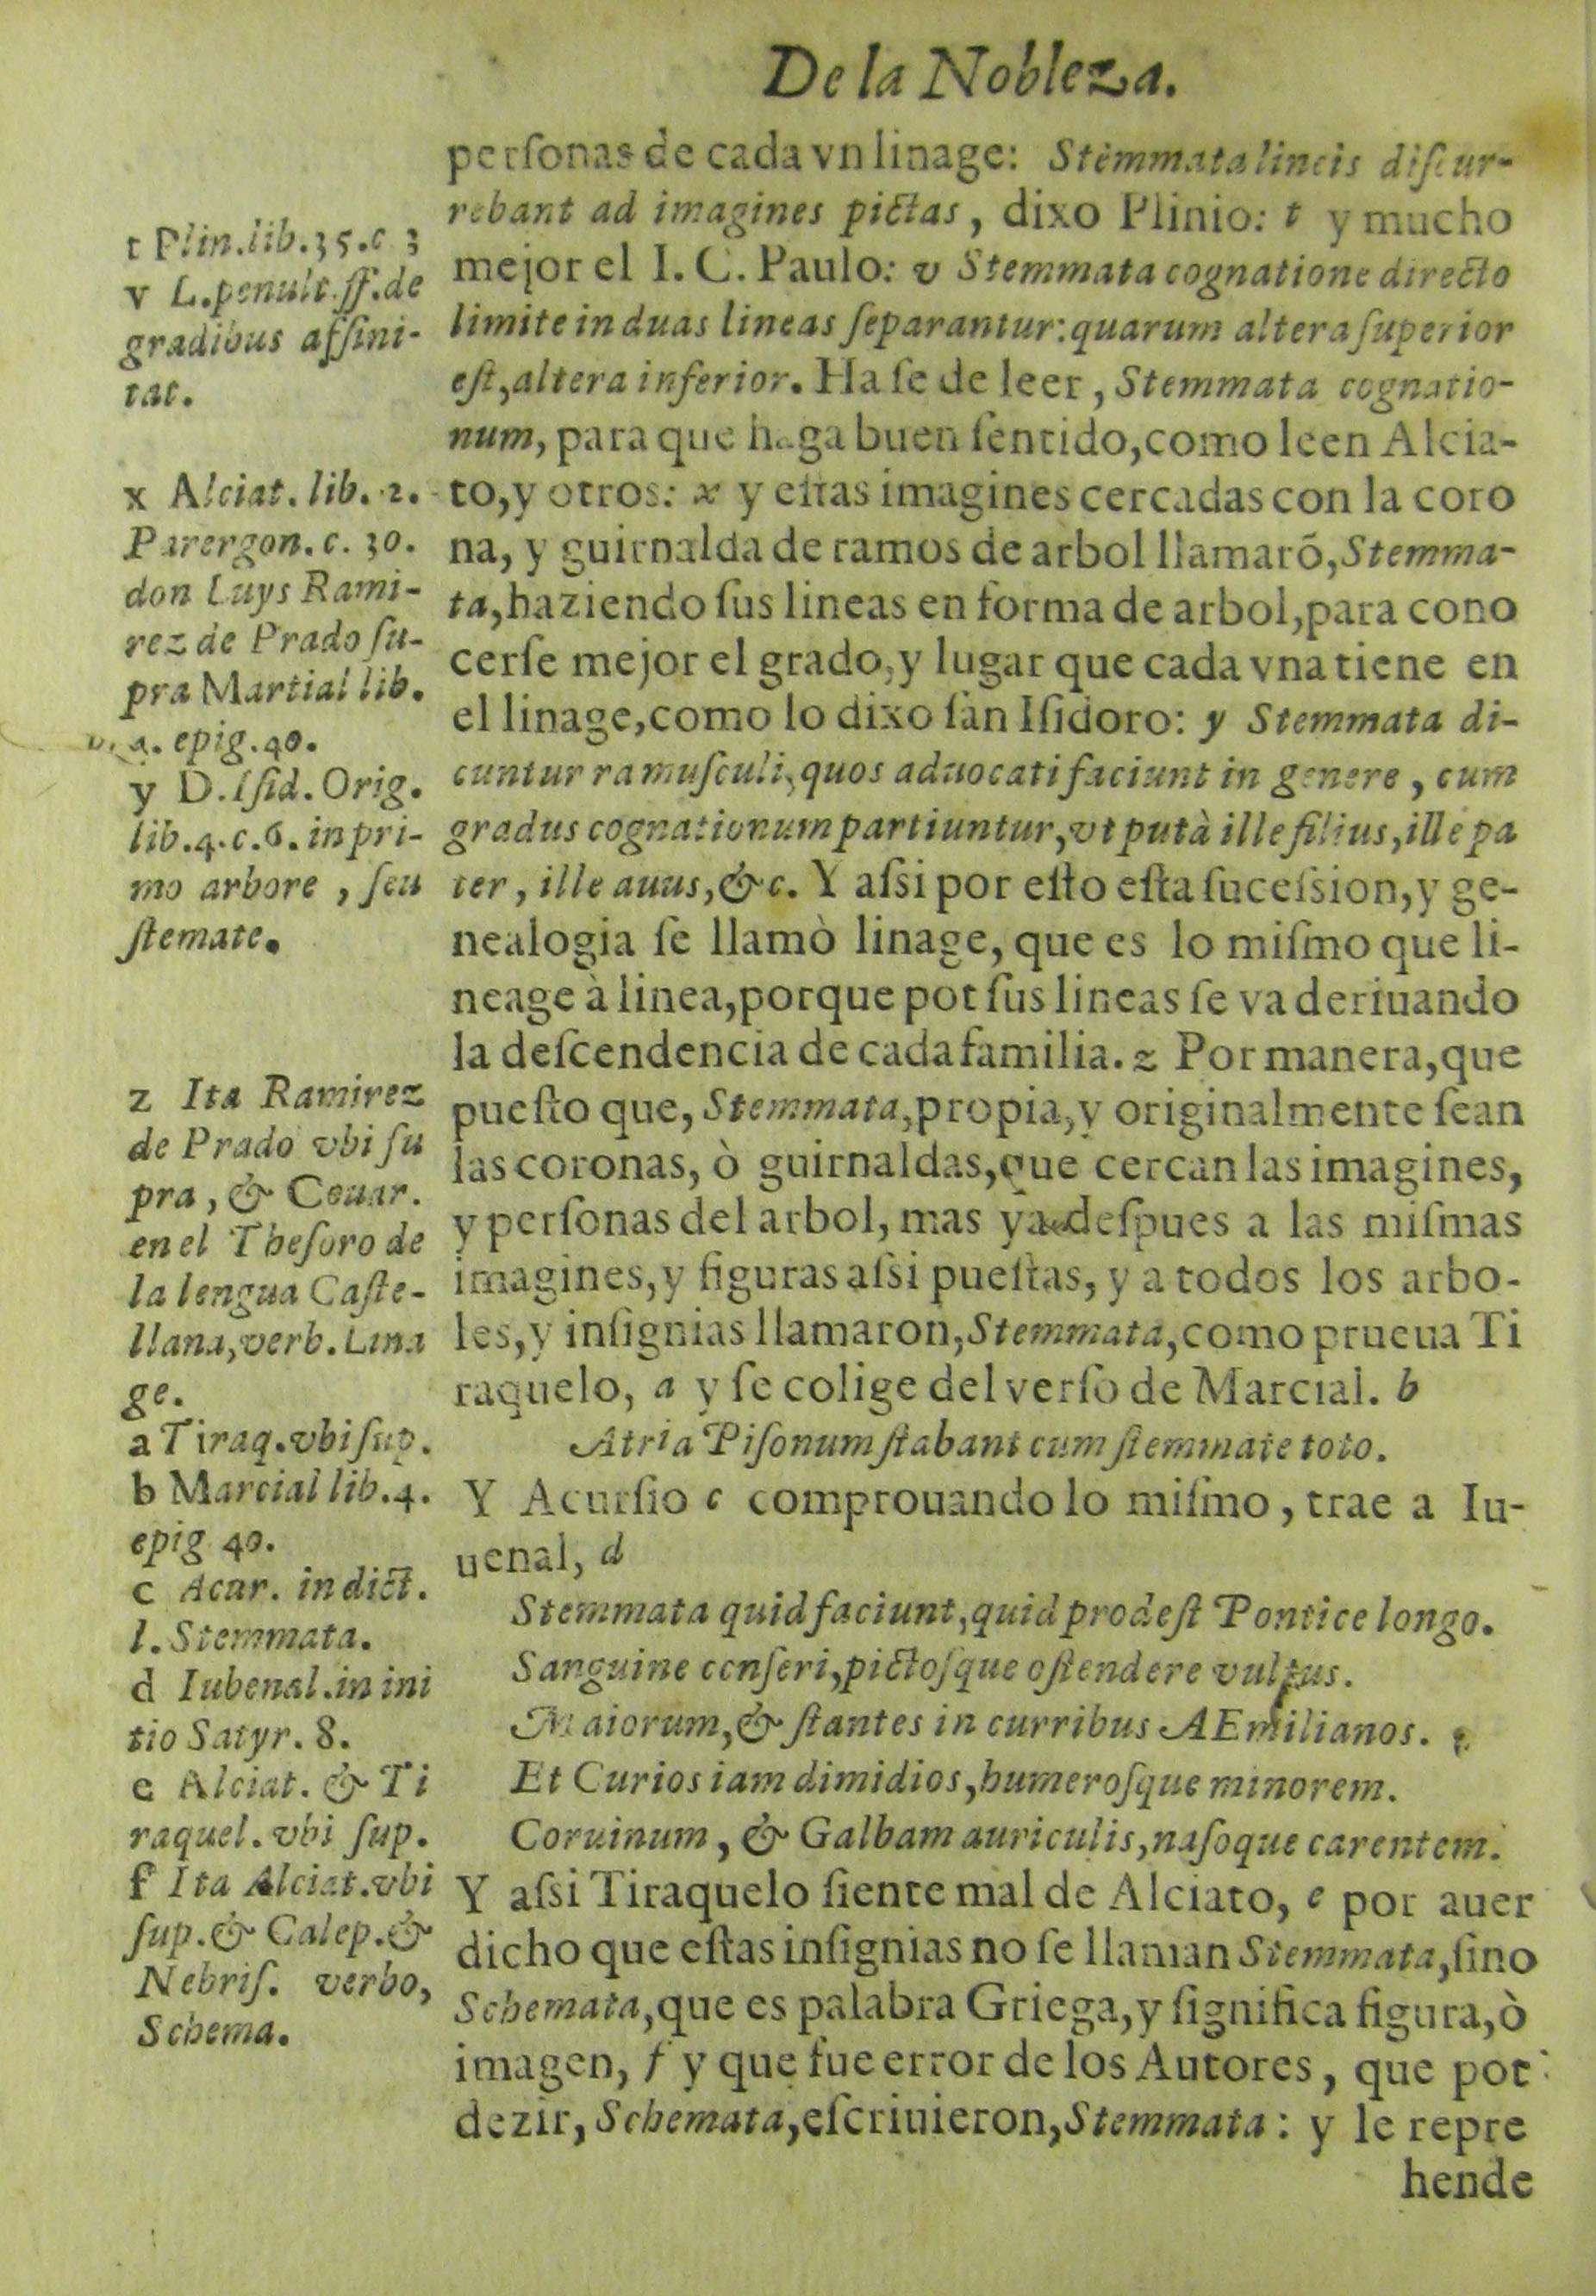 De la Nobleza.
perſonas de cada vn linage: Stemmata lineis diſcur-
rebant ad imagines pictas, dixo Plinio: t y mucho
mejor el I. C. Paulo: v Stemmata cognatione directo
limite in duas lineas ſeparantur: quarum altera ſuperior
eſt, altera inferior. Ha ſe de leer, Stemmata cognatio-
num, para que haga buen ſentido, como leen Alcia-
to, y otros: x y eſtas imagines cercadas con la coro
na, y guirnalda de ramos de arbol llamarõ, Stemma-
ta, haziendo ſus lineas en forma de arbol, para cono
cerſe mejor el grado, y lugar que cada vna tiene en
el linage, como lo dixo ſan Iſidoro: y Stemmata di-
cuntur ramuſculi, quos aduocati faciunt in genere, cum
gradus cognationum partiuntur, vt putà ille filius, ille pa
ter, ille auus, &c. Y aſsi por eſto eſta ſuceſsion, y ge-
nealogia ſe llamò linage, que es lo miſmo que li-
neage à linea, porque pot ſus lineas ſe va deriuando
la deſcendencia de cada familia. z Por manera, que
pueſto que, Stemmata, propia, y originalmente ſean
las coronas, ò guirnaldas, que cercan las imagines,
y perſonas del arbol, mas ya deſpues a las miſmas
imagines, y figuras aſsi pueſtas, y a todos los arbo-
les, y inſignias llamaron, Stemmata, como prueua Ti
raquelo, a y ſe colige del verſo de Marcial. b
Atria Piſonum ſtabant cum ſtemmate toto.
Y Acurſio c comprouando lo miſmo, trae a Iu-
uenal, d
Stemmata quid faciunt, quid prodeſt Pontice longo.
Sanguine cenſeri, pictoſque oſtendere vultus.
Maiorum, & ſtantes in curribus AEmilianos.
Et Curios iam dimidios, humeroſque minorem.
Coruinum, & Galbam auriculis, naſoque carentem.
Y aſsi Tiraquelo ſiente mal de Alciato, e por auer
dicho que eſtas inſignias no ſe llaman Stemmata, ſino
Schemata, que es palabra Griega, y ſignifica figura, ò
imagen, f y que fue error de los Autores, que pot
dezir, Schemata, eſcriuieron, Stemmata: y le repre
hende
t Plin. lib. 35. c 3
v L. penult. ff. de
gradibus aſſini-
tat.
x Alciat. lib. 2.
Parergon. c. 30.
don Luys Rami-
rez de Prado ſu-
pra Martial lib.
epig. 40.
y D. Iſid. Orig.
lib. 4. c. 6. in pri-
mo arbore, ſeu
ſtemate.
z Ita Ramirez
de Prado vbi ſu
pra, & Couar.
en el Theſoro de
la lengua Caſte-
llana, verb. Lina
ge.
a Tiraq. vbi ſup.
b Marcial lib. 4.
epig 40.
c Acur. in dict.
l. Stemmata.
d Iubenal. in ini
tio Satyr. 8.
e Alciat. & Ti
raquel. vbi ſup.
f Ita Alciat. vbi
ſup. & Calep. &
Nebriſ. verbo,
Schema.